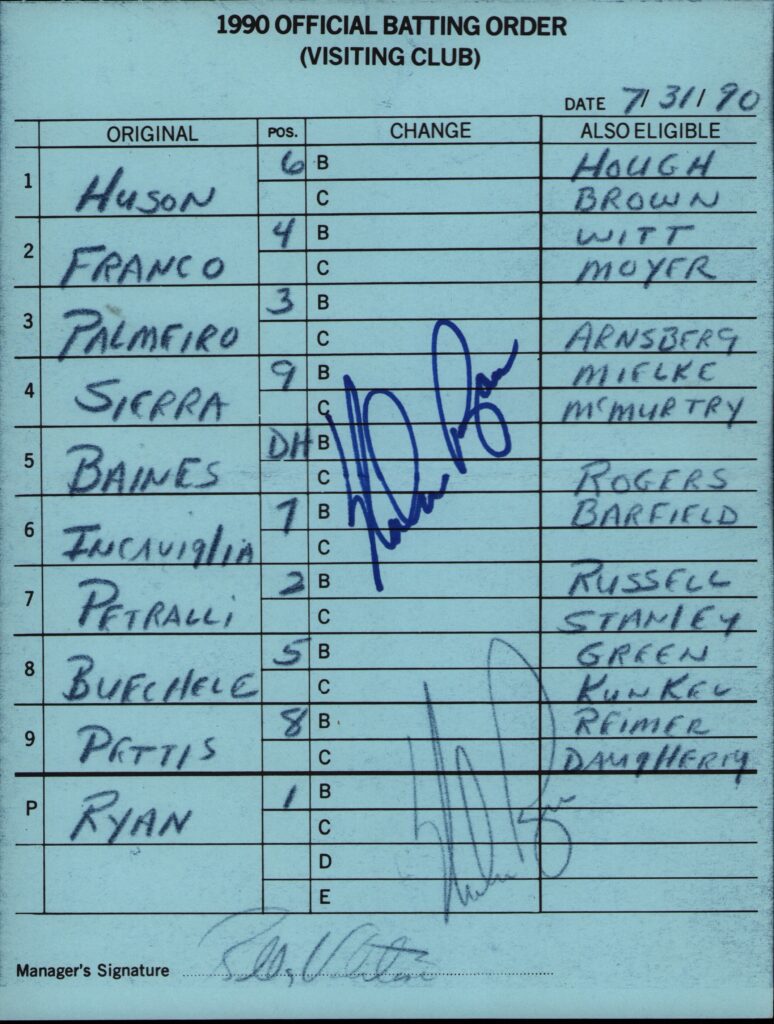 1990 OFFICIAL BATTING ORDER
(VISITING CLUB)
DATE 7/31/90
ORIGINAL POS. CHANGE ALSO ELIGIBLE
1 HUSON 6 B HOUGH
C BROWN
2 FRANCO 4 B WITT
C MOYER
3 PALMEIRO 3 B
C ARNSBERG
4 SIERRA 9 B MIELKE
C McMURTRY
5 BAINES DH B
C ROGERS
6 INCAVIGLIA 7 B BARFIELD
C
7 PETRALLI 2 B RUSSELL
C STANLEY
8 BUECHELE 5 B GREEN
C KUNKEL
9 PETTIS 8 B REIMER
C DAUGHERTY
P RYAN 1 B
C
D
E
Nolan Ryan
Nolan Ryan
Manager's Signature Bobby Valentine